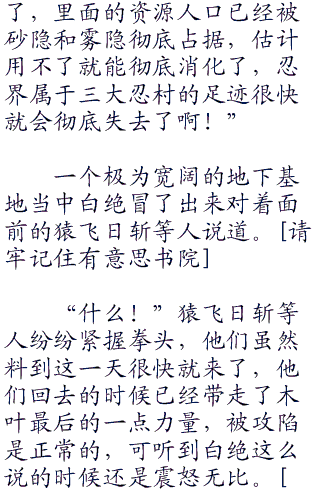 了，里面的资源人口已经被
砂隐和雾隐彻底占据，估计
用不了就能彻底消化了，忍
界属于三大忍村的足迹很快
就会彻底失去了啊！”
一个极为宽阔的地下基
地当中白绝冒了出来对着面
前的猿飞日斩等人说道。[请
牢记住有意思书院]
“什么！”猿飞日斩等
人纷纷紧握拳头，他们虽然
料到这一天很快就来了，他
们回去的时候已经带走了木
叶最后的一点力量，被攻陷
是正常的，可听到白绝这么
说的时候还是震怒无比。[